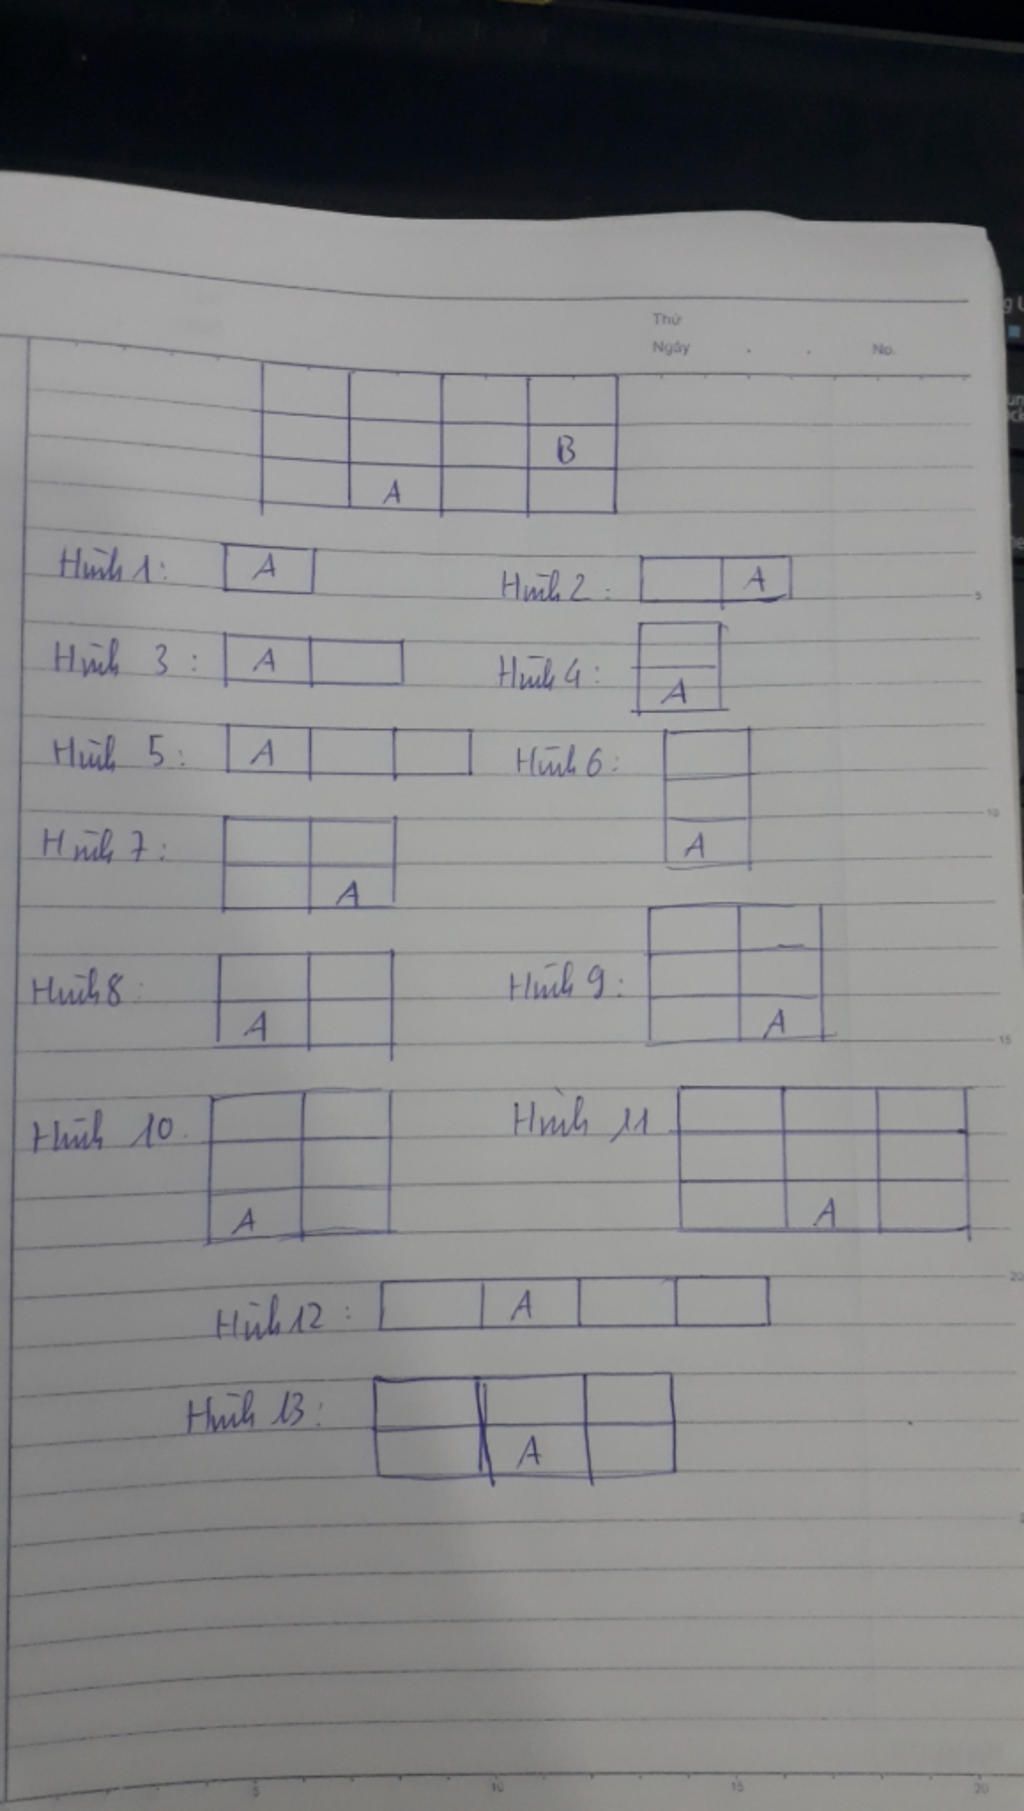 Thứ
Ngày . . No.
B
A
Hình 1: A
Hình 2: A
Hình 3: A
Hình 4: A
Hình 5: A
Hình 6: A
Hình 7: A
Hình 8: A
Hình 9: A
Hình 10. A
Hình 11 A
Hình 12: A
Hình 13: A
5
10
15
20
5 10 15 20